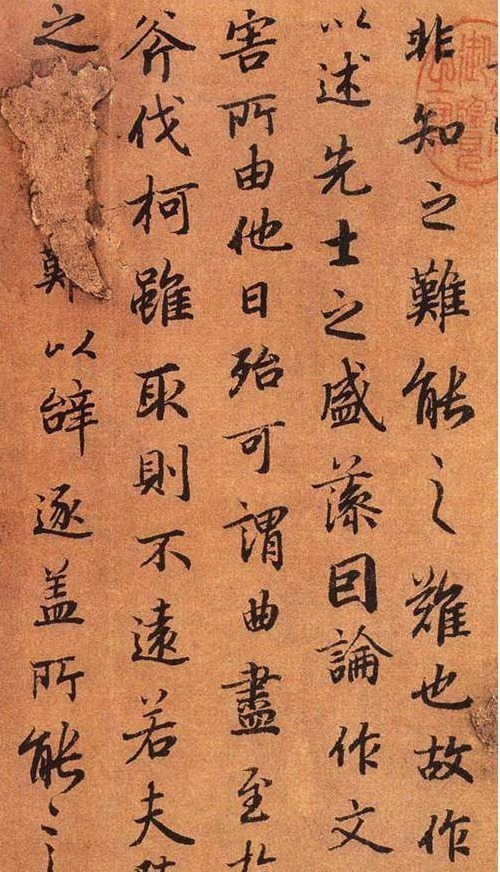 非知之難能之難也故作
以述先士之盛藻因論作文
害所由他日殆可謂曲盡至
斧伐柯雖取則不遠若夫
之難以辝逐盖所能